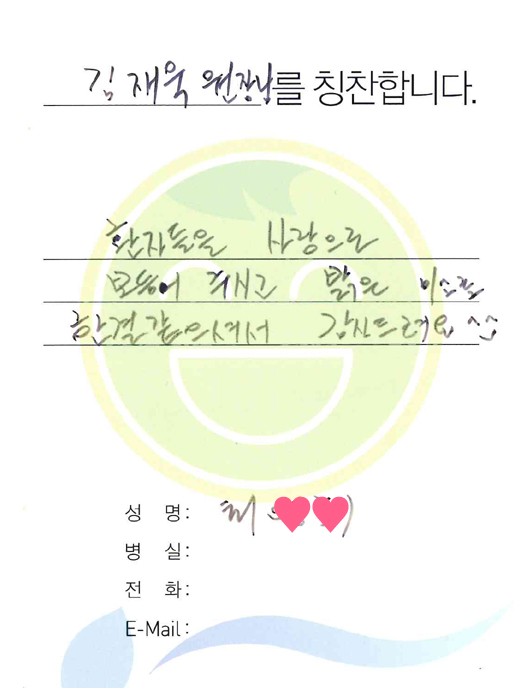 김재욱 원장님를 칭찬합니다.
환자들을 사랑으로
보듬어 주시고 밝은 미소로
한결같으셔서 감사드려요 ^^
성 명: 최
병 실:
전 화:
E-Mail: